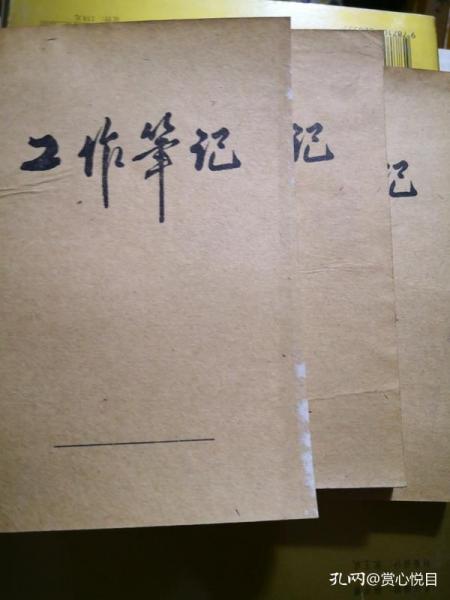 工作筆记
记
记
孔网@赏心悦目